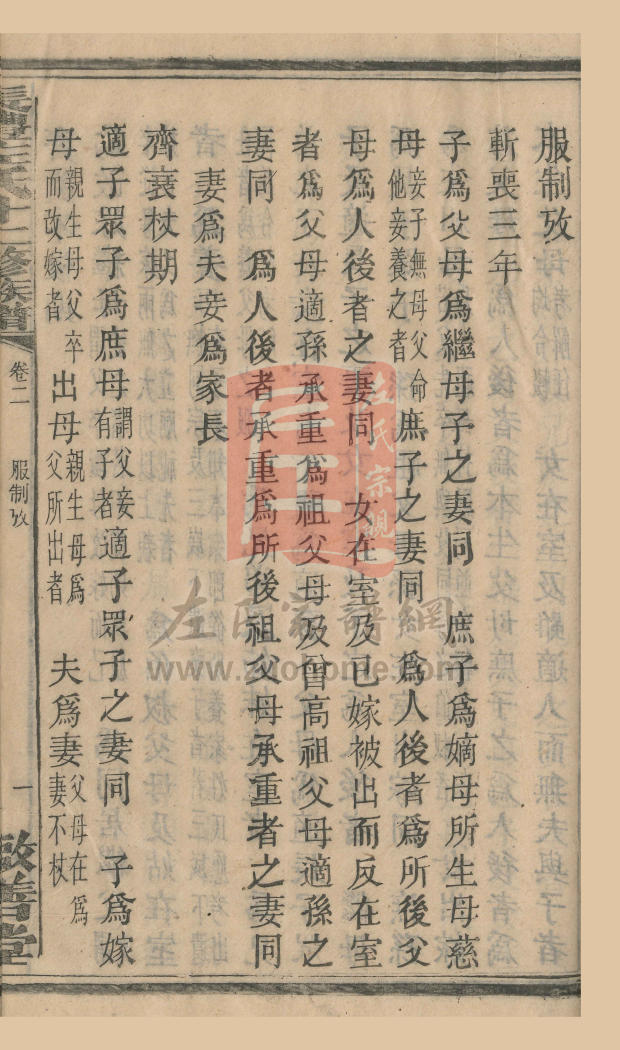 服制攷
斬喪三年
子爲父母爲繼母子之妻同　庶子爲嫡母所生母慈
母妾子無母父命他妾養之者庶子之妻同　爲人後者爲所後父
母爲人後者之妻同　女在室及已嫁被出而反在室
者爲父母適孫承重爲祖父母及曾高祖父母適孫之
妻同　爲人後者承重爲所後祖父母承重者之妻同
妻爲夫妾爲家長
齊衰杖期
適子眾子爲庶母謂父妾有子者適子眾子之妻同　子爲嫁
母親生母父卒而改嫁者出母親生母爲父所出者　夫爲妻父母在爲妻不杖
氏十二修族譜
卷二
服制攷
一
敬善堂
氏宗親
左臣家譜網